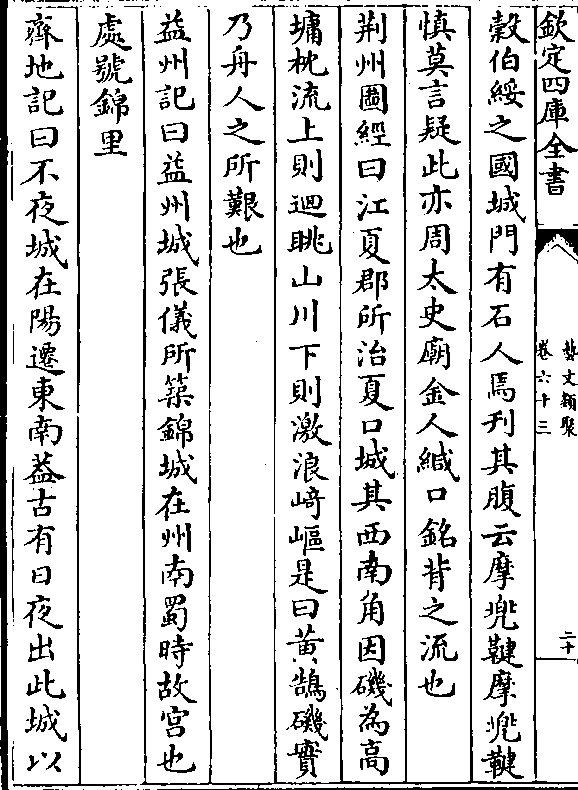 欽定四庫全書
藝文類聚
卷六十三
二十
縠伯綏之國城門有石人焉刋其腹云摩兠鞬摩兠鞬
慎莫言疑此亦周太史廟金人緘口銘背之流也
荆州圖經曰江夏郡所治夏口城其西南角因磯為高
墉枕流上則迴眺山川下則激浪﨑嶇是曰黄鵠磯實
乃舟人之所艱也
益州記曰益州城張儀所築錦城在州南蜀時故宫也
處號錦里
齊地記曰不夜城在陽遷東南葢古有日夜出此城以